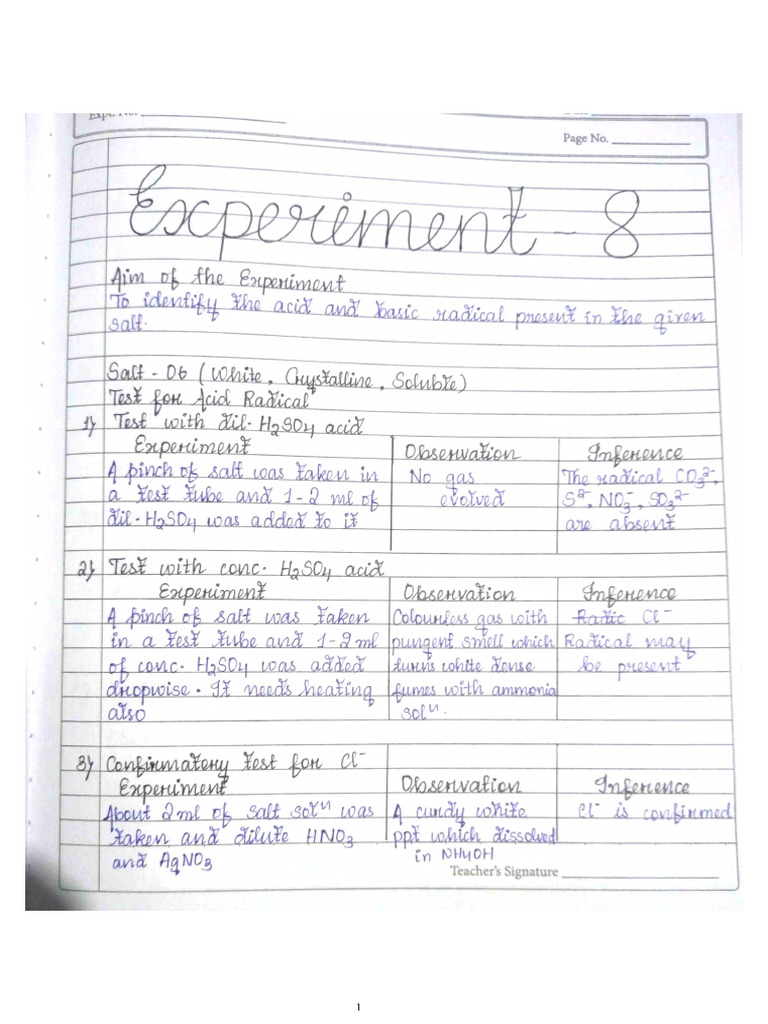 Expt. No.
Page No.
Experiment - 8
Aim of the Experiment
To identify the acid and basic radical present in the given
salt.
Salt - 06 (White, Crystalline, Soluble)
Test for Acid Radical
1) Test with dil. H2SO4 acid
Experiment Observation Inference
A pinch of salt was taken in No gas The radical CO3²⁻,
a test tube and 1-2 ml of evolved S²⁻, NO3⁻, SO3²⁻
dil. H2SO4 was added to it are absent
2) Test with conc. H2SO4 acid
Experiment Observation Inference
A pinch of salt was taken Colourless gas with Radic Cl⁻
in a test tube and 1-2 ml pungent smell which Radical may
of conc. H2SO4 was added turns white dense be present
dropwise. It needs heating fumes with ammonia
also solⁿ.
3) Confirmatory test for Cl⁻
Experiment Observation Inference
About 2 ml of salt solⁿ was A curdy white Cl⁻ is confirmed
taken and dilute HNO3 ppt which dissolved
and AgNO3 in NH4OH
Teacher's Signature
1